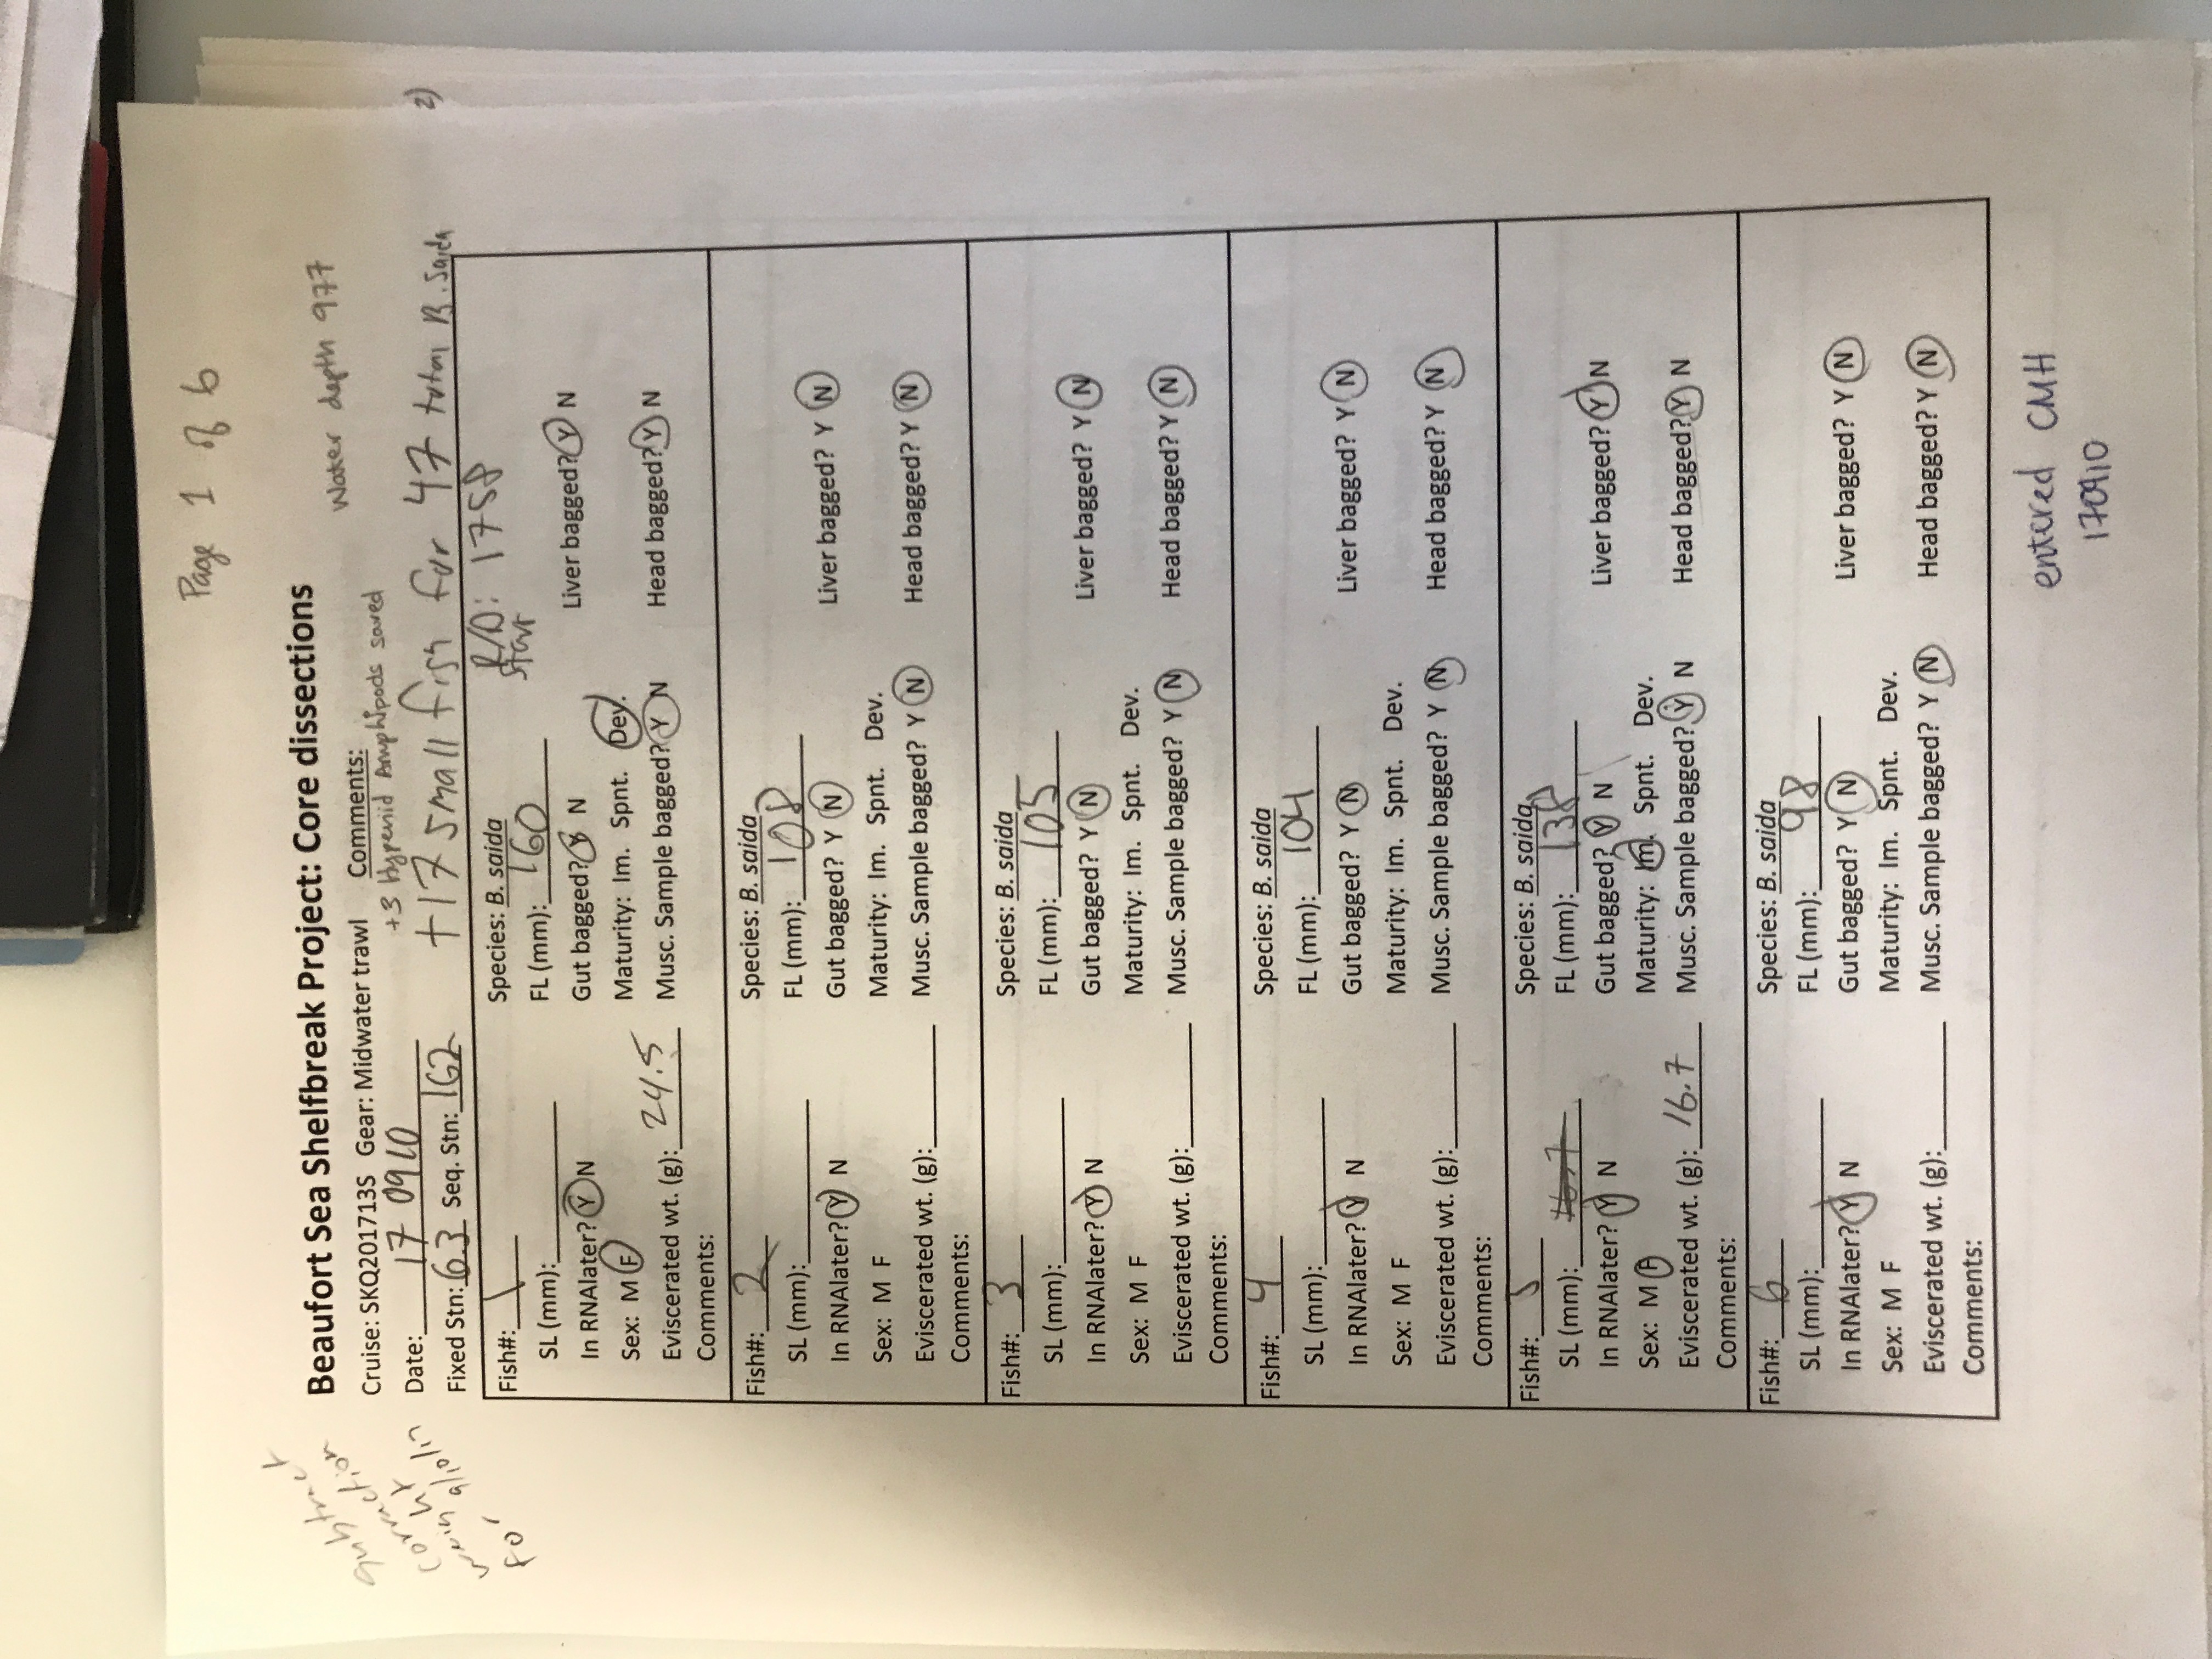 Page 1 of 6
Water depth 977
Beaufort Sea Shelfbreak Project: Core dissections
Cruise: SKQ201713S Gear: Midwater trawl Comments:
+3 Hyperiid Amphipods saved
Date: 170910
Fixed Stn: 6.3 Seq. Stn: 162 +17 small fish for 47 total B. Saida
subtract
correction
weight
for 9/10/17
2)
Fish#: 1 Species: B. saida R/D: 1758
start
SL (mm): FL (mm): 160
In RNAlater? Y N Gut bagged? Y N Liver bagged? Y N
Sex: M F Maturity: Im. Spnt. Dev.
Eviscerated wt. (g): 24.5 Musc. Sample bagged? Y N Head bagged? Y N
Comments:
Fish#: 2 Species: B. saida
SL (mm): FL (mm): 108
In RNAlater? Y N Gut bagged? Y N Liver bagged? Y N
Sex: M F Maturity: Im. Spnt. Dev.
Eviscerated wt. (g): Musc. Sample bagged? Y N Head bagged? Y N
Comments:
Fish#: 3 Species: B. saida
SL (mm): FL (mm): 105
In RNAlater? Y N Gut bagged? Y N Liver bagged? Y N
Sex: M F Maturity: Im. Spnt. Dev.
Eviscerated wt. (g): Musc. Sample bagged? Y N Head bagged? Y N
Comments:
Fish#: 4 Species: B. saida
SL (mm): FL (mm): 104
In RNAlater? Y N Gut bagged? Y N Liver bagged? Y N
Sex: M F Maturity: Im. Spnt. Dev.
Eviscerated wt. (g): Musc. Sample bagged? Y N Head bagged? Y N
Comments:
Fish#: 5 Species: B. saida
SL (mm): 16.7 FL (mm): 138
In RNAlater? Y N Gut bagged? Y N Liver bagged? Y N
Sex: M F Maturity: Im. Spnt. Dev.
Eviscerated wt. (g): 16.7 Musc. Sample bagged? Y N Head bagged? Y N
Comments:
Fish#: 6 Species: B. saida
SL (mm): FL (mm): 98
In RNAlater? Y N Gut bagged? Y N Liver bagged? Y N
Sex: M F Maturity: Im. Spnt. Dev.
Eviscerated wt. (g): Musc. Sample bagged? Y N Head bagged? Y N
Comments:
entered CMH
170910